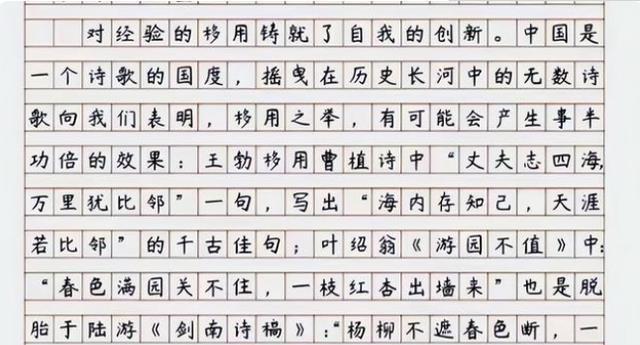 对经验的移用铸就了自我的创新。中国是
一个诗歌的国度，摇曳在历史长河中的无数诗
歌向我们表明，移用之举，有可能会产生事半
功倍的效果：王勃移用曹植诗中“丈夫志四海，
万里犹比邻”一句，写出“海内存知己，天涯
若比邻”的千古佳句；叶绍翁《游园不值》中：
“春色满园关不住，一枝红杏出墙来”也是脱
胎于陆游《剑南诗稿》：“杨柳不遮春色断，一